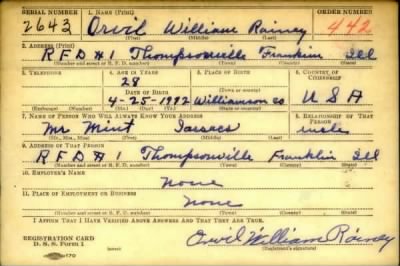 SERIAL NUMBER 1. NAME (Print) ORDER NUMBER
2643 Orvil William Rainey 442
(First) (Middle) (Last)
2. ADDRESS (Print)
R F D # 1 Thompsonville Franklin Ill
(Number and street or R. F. D. number) (Town) (County) (State)
3. TELEPHONE 4. AGE IN YEARS 5. PLACE OF BIRTH 6. COUNTRY OF CITIZENSHIP
28
DATE OF BIRTH (Town or county)
4-25-1912 Williamson co U S A
(Exchange) (No.) (Mo.) (Day) (Yr.) (State or country)
7. NAME OF PERSON WHO WILL ALWAYS KNOW YOUR ADDRESS 8. RELATIONSHIP OF THAT PERSON
Mr Mint uncle
(Mr., Mrs., Miss) (First) (Middle) (Last)
9. ADDRESS OF THAT PERSON
R F D # Thompsonville Franklin Ill
(Number and street or R. F. D. number) (Town) (County) (State)
10. EMPLOYER'S NAME
None
11. PLACE OF EMPLOYMENT OR BUSINESS
None
(Number and street or R. F. D. number) (Town) (County) (State)
I AFFIRM THAT I HAVE VERIFIED ABOVE ANSWERS AND THAT THEY ARE TRUE.
REGISTRATION CARD
D. S. S. Form 1 Orvil William Rainey
(Registrant's signature)